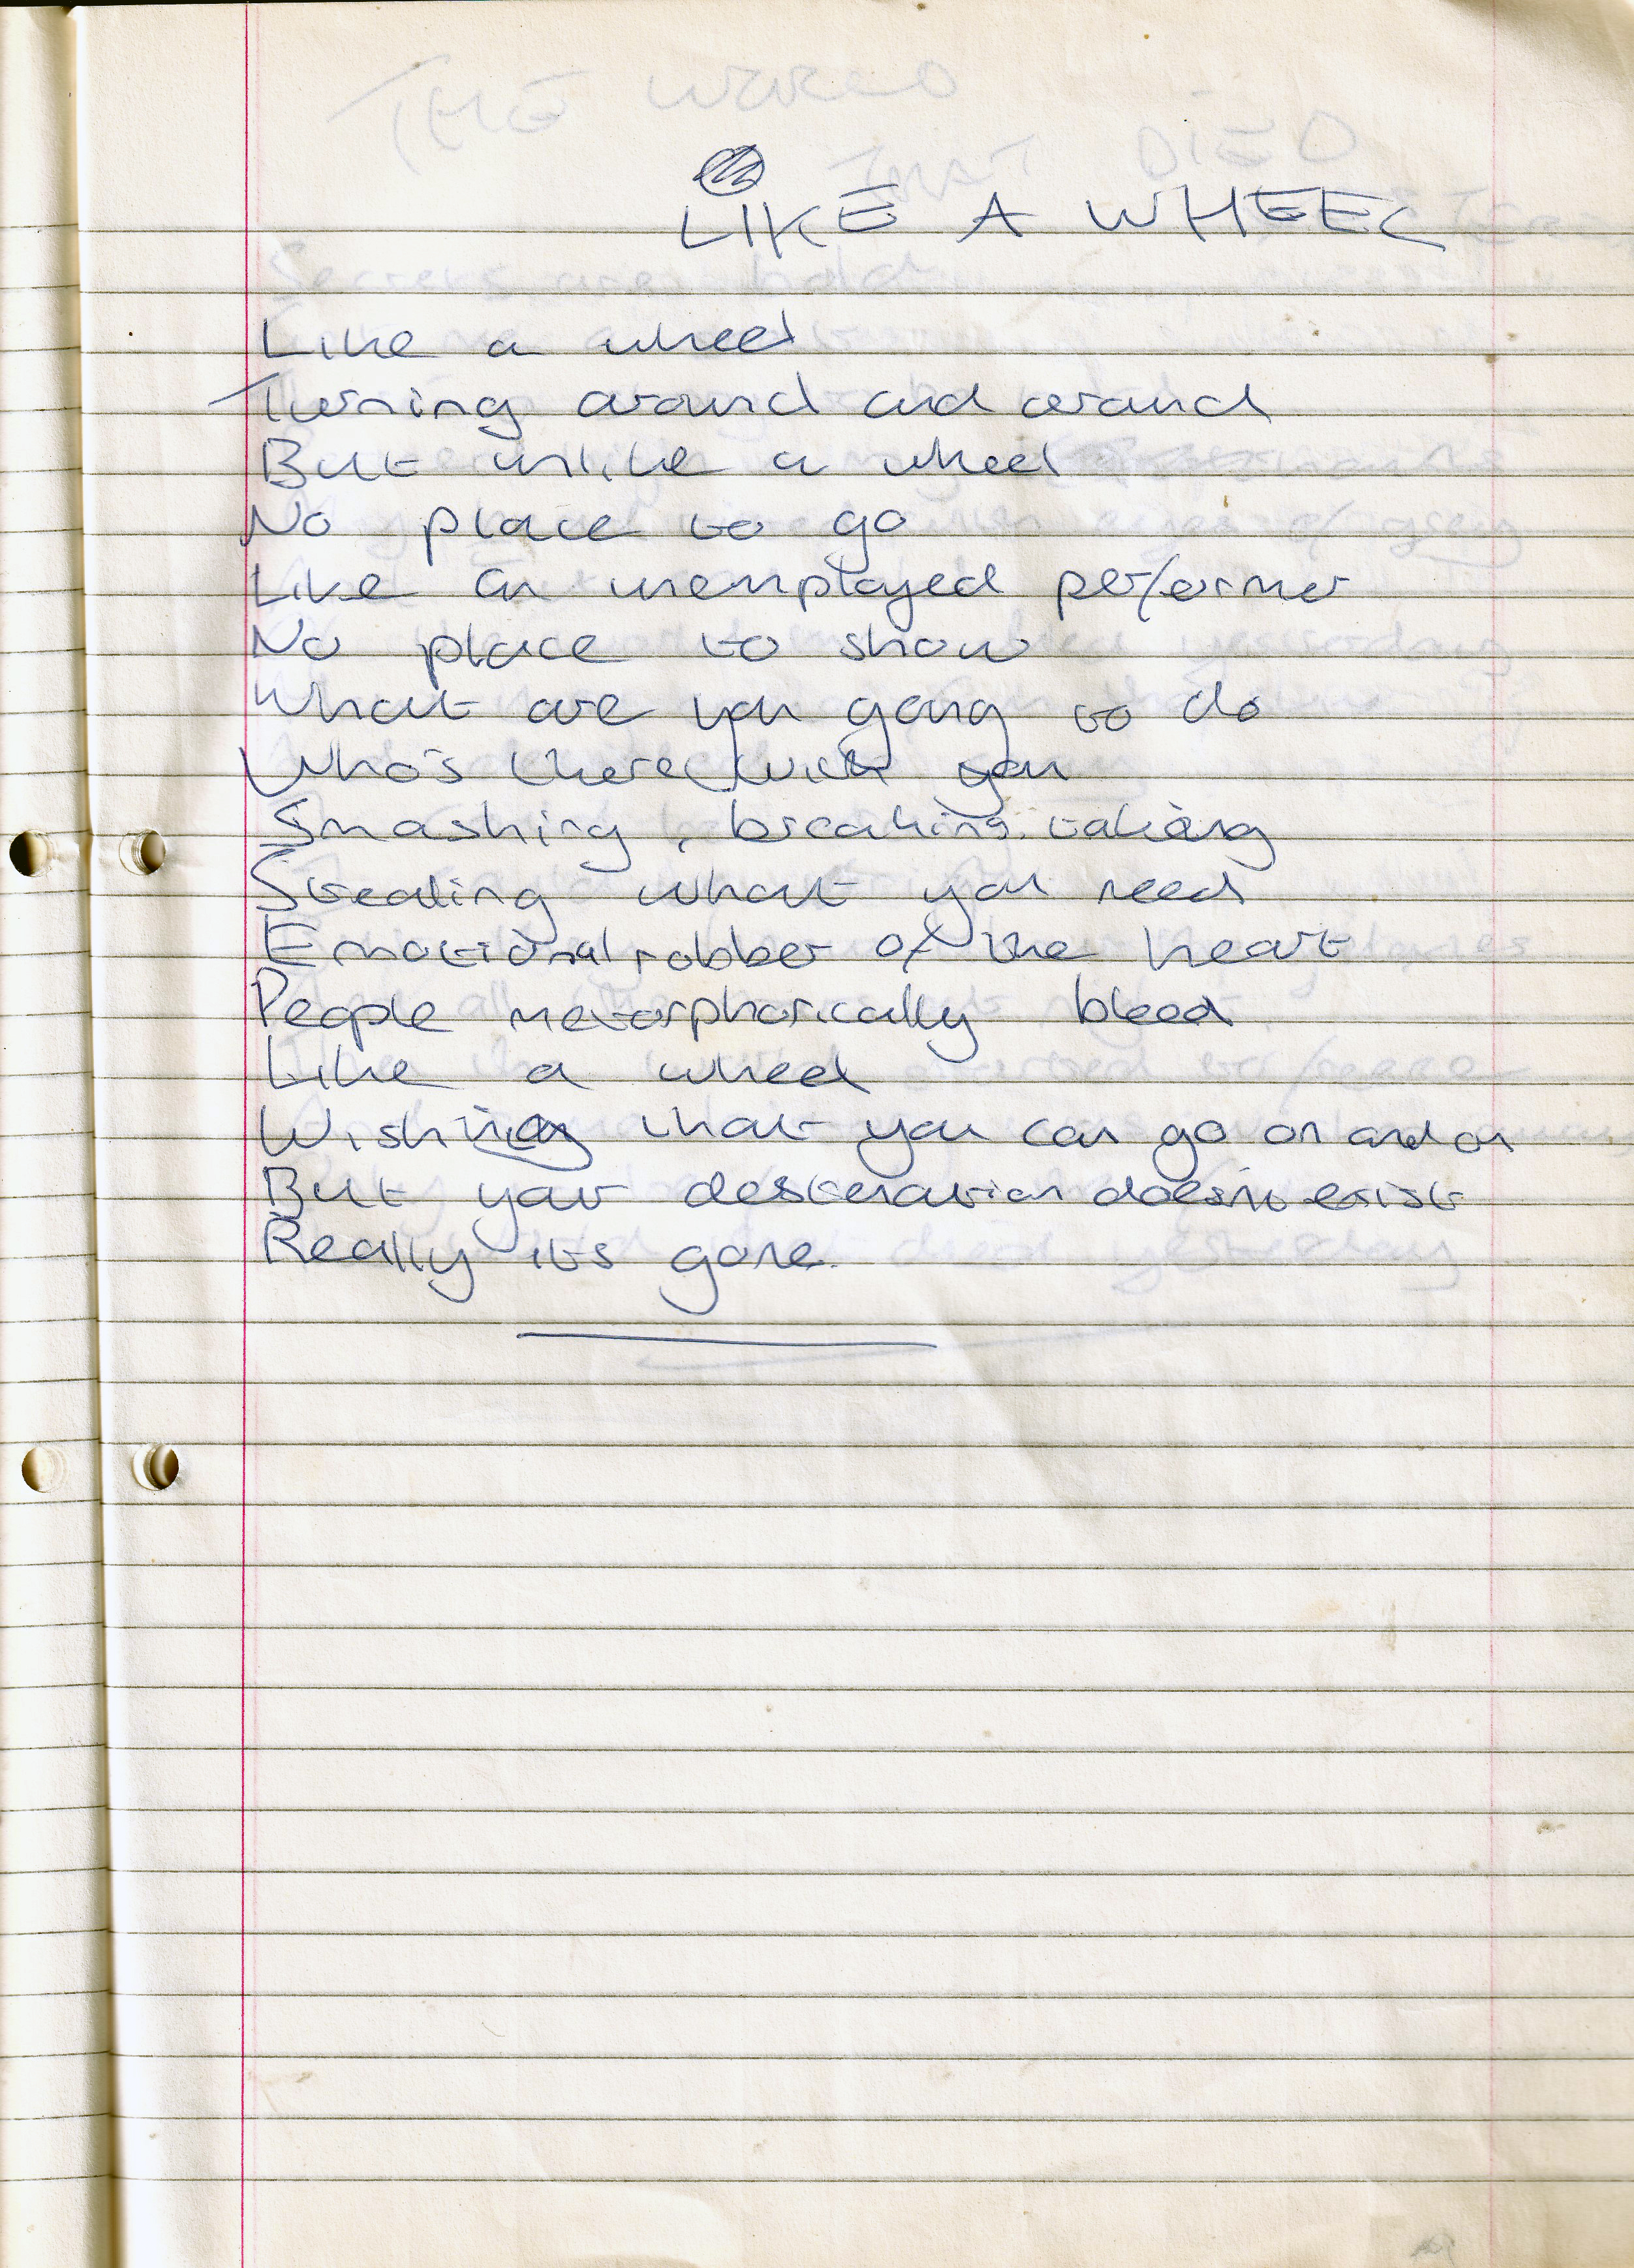 LIKE A WHEEL
Like a wheel
Turning around and around
But unlike a wheel
No place to go
Like an unemployed performer
No place to show
What are you going to do
Who's there with you
Smashing, breaking, taking
Stealing what you need
Emotional robber of the heart
People metorphorically bleed
Like a wheel
Wishing that you can go on and on
But your desteration doesn't exist
Really its gone.